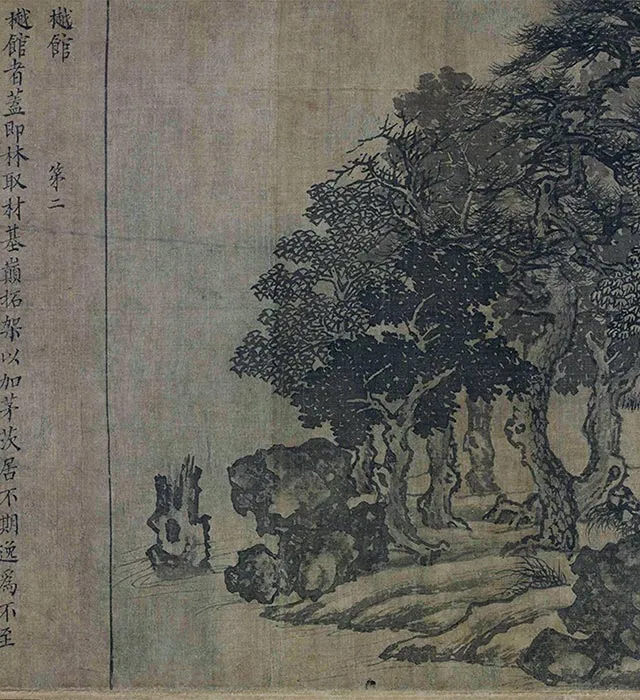 樾館 第二
樾館者蓋即林取材基巔拓架以加茅茨居不期逸爲不至